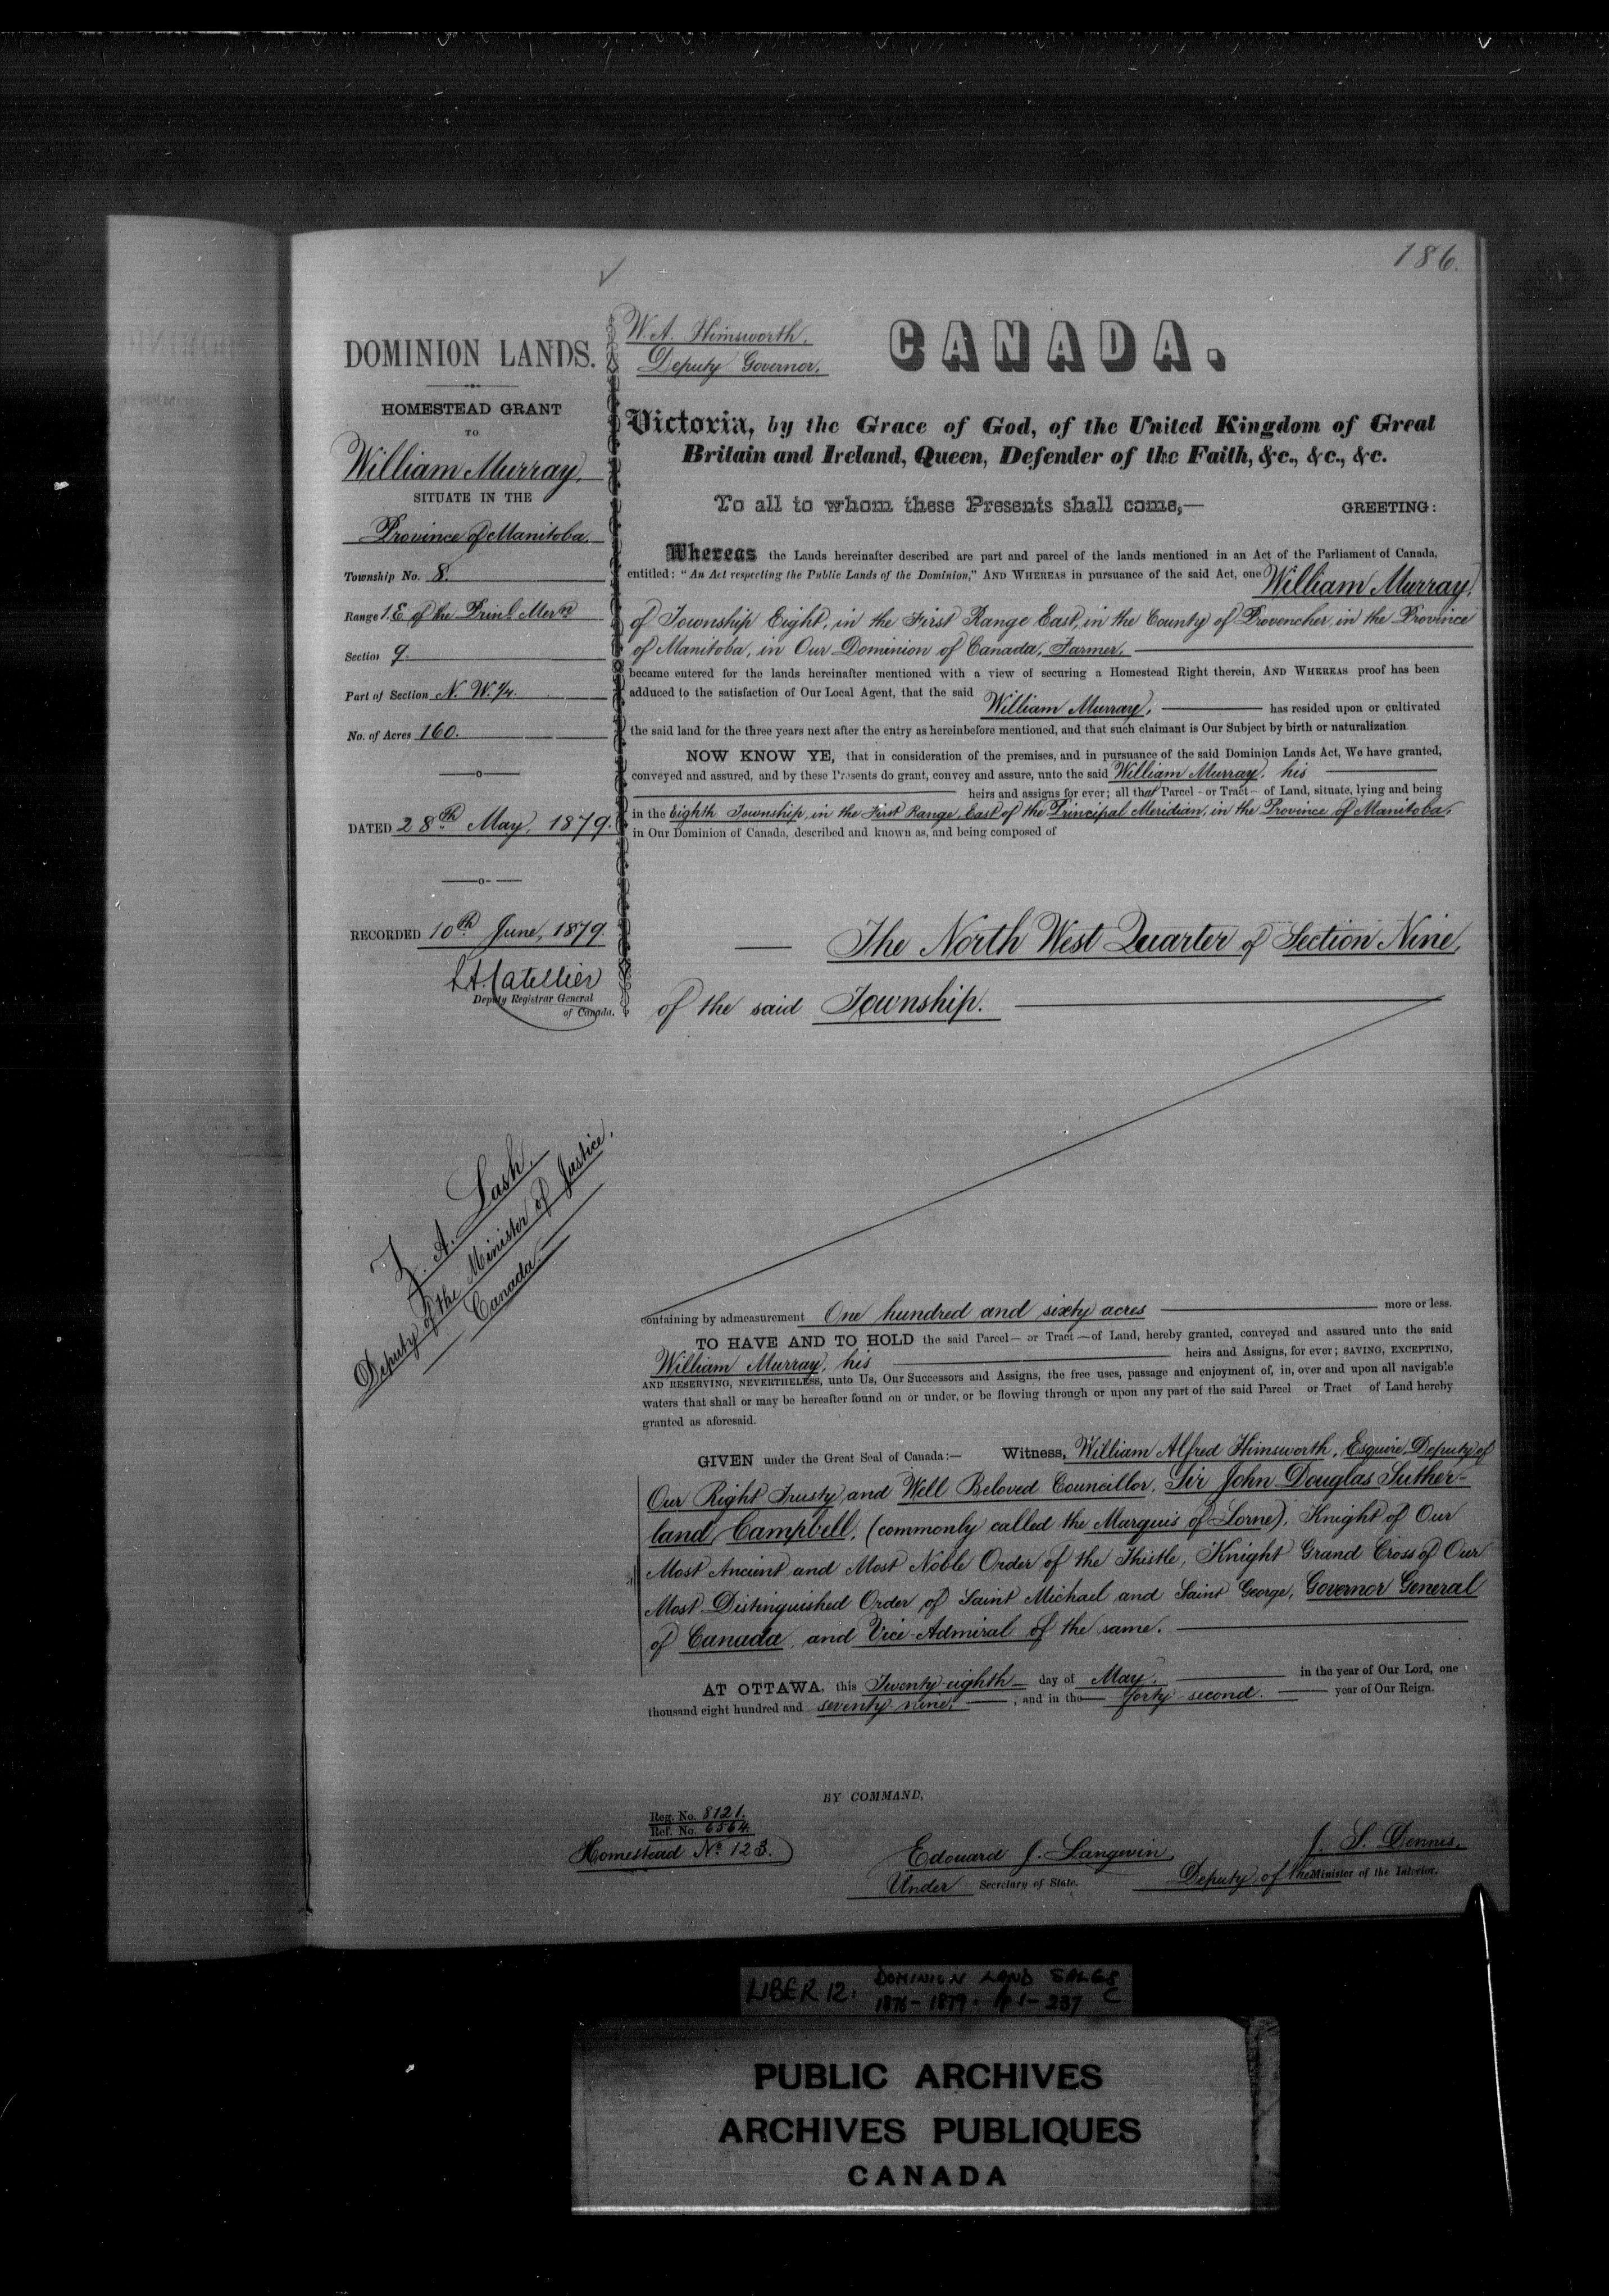 186.
DOMINION LANDS.
HOMESTEAD GRANT
TO
William Murray,
SITUATE IN THE
Province of Manitoba.
Township No. 8.
Range 1. E of the Prinl. Mern
Section 9.
Part of Section N. W. 1/4.
No. of Acres 160.
DATED 28th May, 1879.
RECORDED 10th June, 1879.
Deputy Registrar General
of Canada.
Z. A. Lash,
Deputy of the Minister of Justice,
Canada.
W. A. Himsworth,
Deputy Governor.
CANADA.
Victoria, by the Grace of God, of the United Kingdom of Great
Britain and Ireland, Queen, Defender of the Faith, &c., &c., &c.
To all to whom these Presents shall come,— GREETING:
Whereas the Lands hereinafter described are part and parcel of the lands mentioned in an Act of the Parliament of Canada,
entitled: "An Act respecting the Public Lands of the Dominion," AND WHEREAS in pursuance of the said Act, one William Murray,
of Township Eight, in the First Range East, in the County of Provencher, in the Province
of Manitoba, in Our Dominion of Canada, Farmer,
became entered for the lands hereinafter mentioned with a view of securing a Homestead Right therein, AND WHEREAS proof has been
adduced to the satisfaction of Our Local Agent, that the said
William Murray, has resided upon or cultivated
the said land for the three years next after the entry as hereinbefore mentioned, and that such claimant is Our Subject by birth or naturalization
NOW KNOW YE, that in consideration of the premises, and in pursuance of the said Dominion Lands Act, We have granted,
conveyed and assured, and by these Presents do grant, convey and assure, unto the said William Murray, his
heirs and assigns for ever; all that Parcel - or Tract - of Land, situate, lying and being
in the Eighth Township, in the First Range, East of the Principal Meridian, in the Province of Manitoba,
in Our Dominion of Canada, described and known as, and being composed of
The North West Quarter of Section Nine,
of the said Township.
containing by admeasurement One hundred and sixty acres more or less.
TO HAVE AND TO HOLD the said Parcel — or Tract — of Land, hereby granted, conveyed and assured unto the said
William Murray, his heirs and Assigns, for ever; SAVING, EXCEPTING,
AND RESERVING, NEVERTHELESS, unto Us, Our Successors and Assigns, the free uses, passage and enjoyment of, in, over and upon all navigable
waters that shall or may be hereafter found on or under, or be flowing through or upon any part of the said Parcel or Tract of Land hereby
granted as aforesaid.
GIVEN under the Great Seal of Canada:— Witness, William Alfred Himsworth, Esquire, Deputy of
Our Right Trusty and Well Beloved Councillor, Sir John Douglas Suther-
land Campbell, (commonly called the Marquis of Lorne), Knight of Our
Most Ancient and Most Noble Order of the Thistle, Knight Grand Cross of Our
Most Distinguished Order of Saint Michael and Saint George, Governor General
of Canada, and Vice-Admiral of the same.
AT OTTAWA, this Twenty eighth day of May, in the year of Our Lord, one
thousand eight hundred and seventy nine, ; and in the forty-second. year of Our Reign.
BY COMMAND,
Reg. No. 8121.
Ref. No. 6564.
Homestead No. 123.
Edouard J. Langevin,
Under Secretary of State.
J. S. Dennis,
Deputy of the Minister of the Interior.
LIBER 12: DOMINION LAND SALES
1876-1879. pp 1-237 C
PUBLIC ARCHIVES
ARCHIVES PUBLIQUES
CANADA